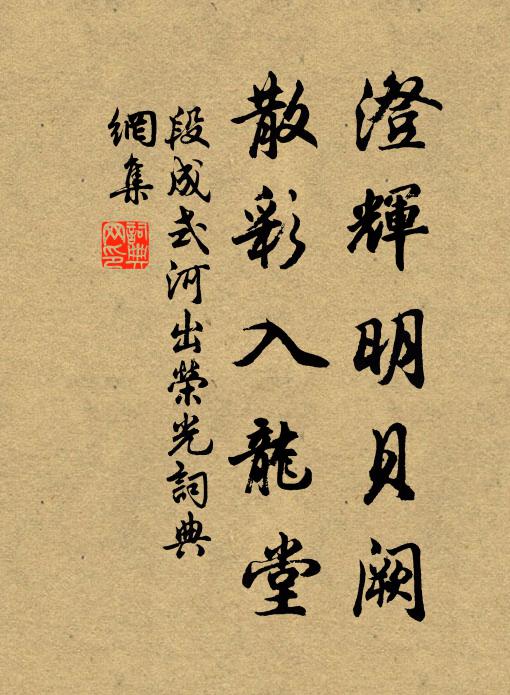 澄輝明貝闕
散彩入龍堂
段成式河出榮光詞典
網集
詞典網印